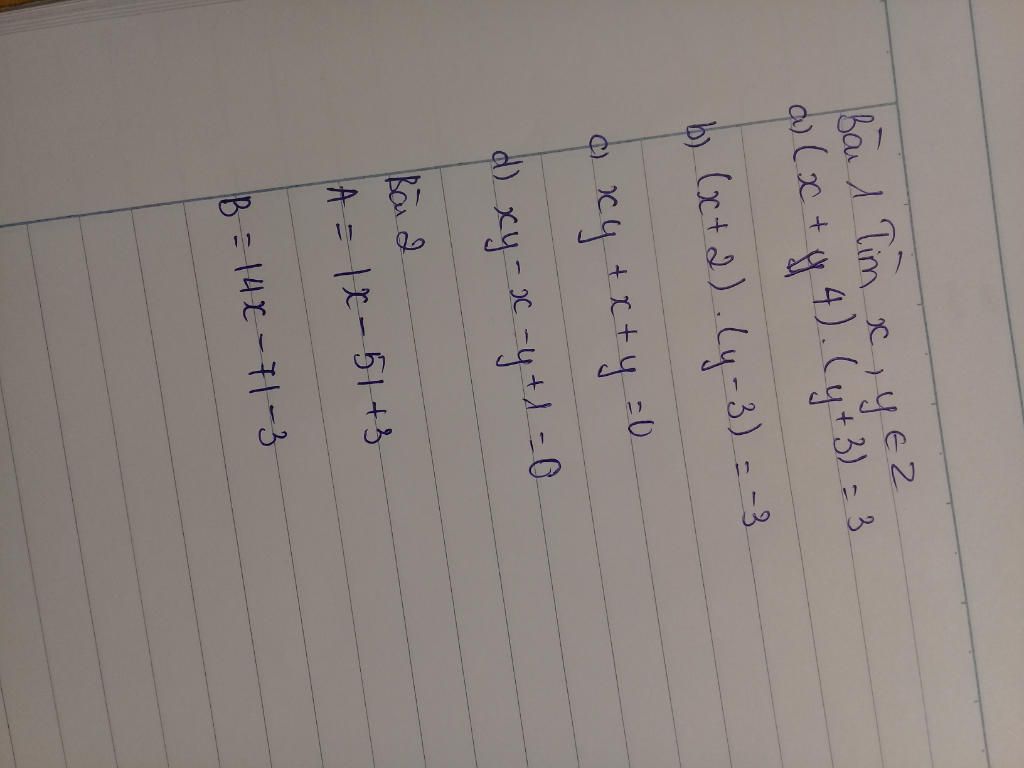 Bài 1 Tìm x, y ∈ Z
a) (x + 4).(y + 3) = 3
b) (x + 2).(y - 3) = -3
c) xy + x + y = 0
d) xy - x - y + 1 = 0
Bài 2
A = |x - 5| + 3
B = |4x - 7| - 3